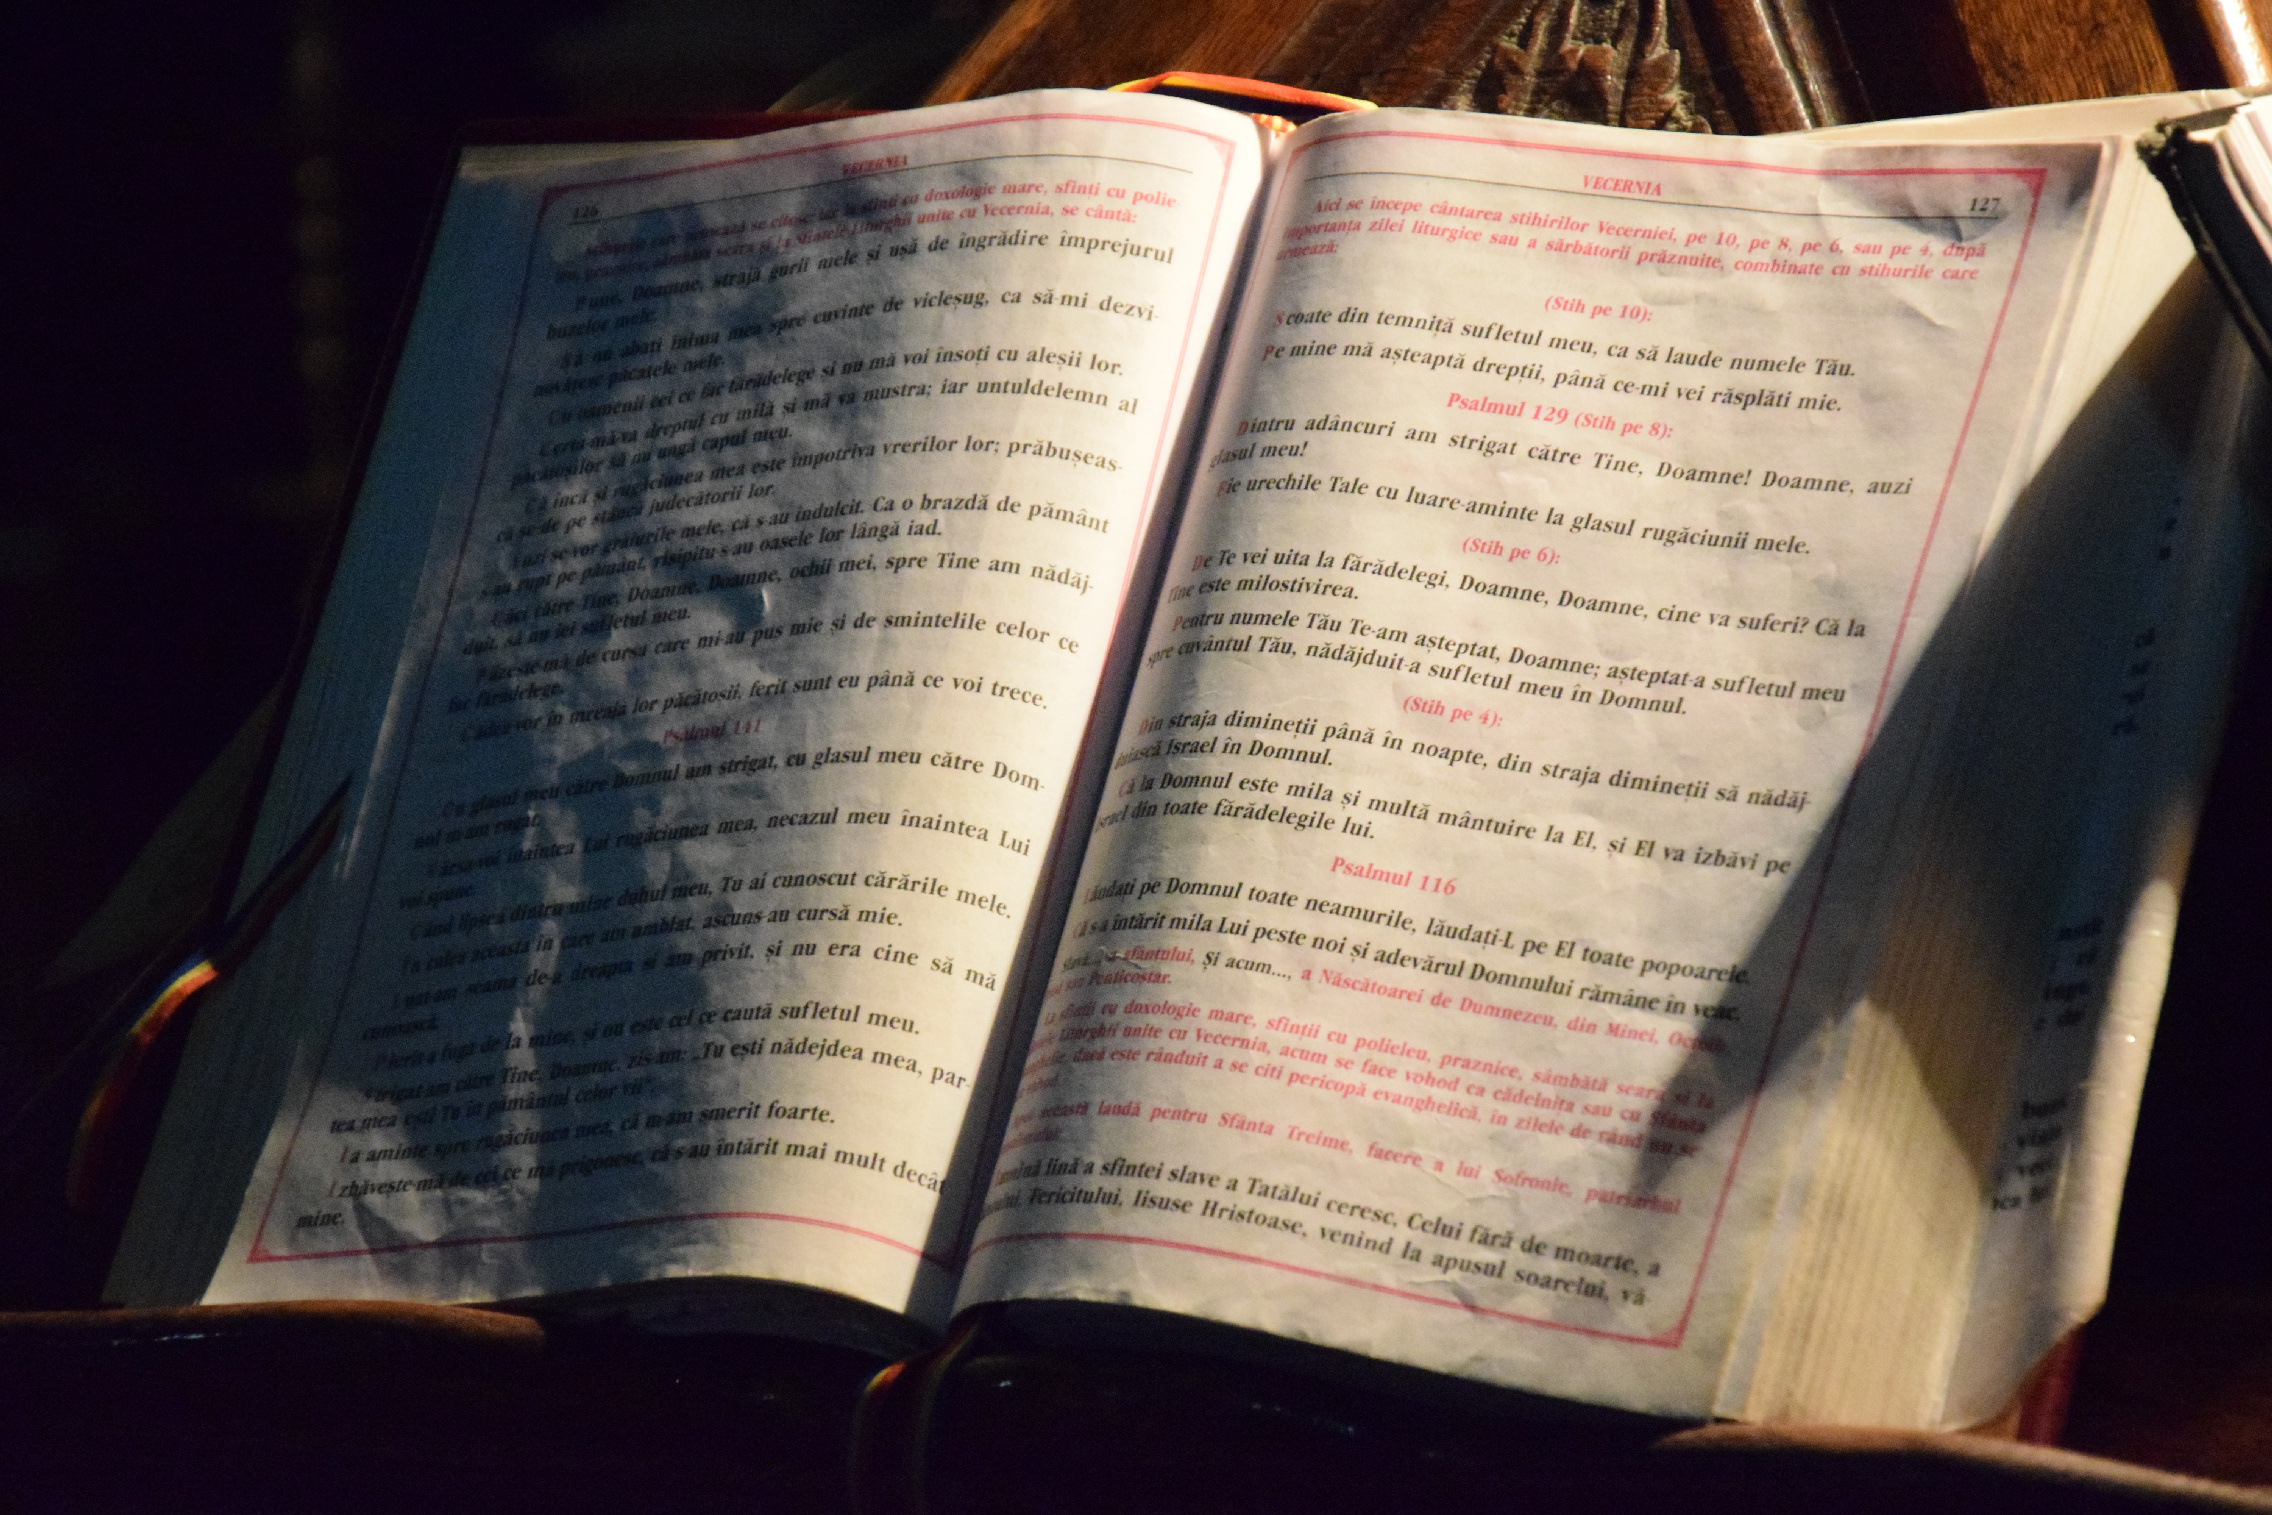 126
VECERNIA
Stihurile care urmează se citesc; iar la sfinți cu doxologie mare, sfinți cu polie-
leu, praznice, sâmbăta seara și la Sfintele Liturghii unite cu Vecernia, se cântă:
Pune, Doamne, strajă gurii mele și ușă de îngrădire împrejurul
buzelor mele.
Să nu abați inima mea spre cuvinte de vicleșug, ca să-mi dezvi-
novățesc păcatele mele.
Cu oamenii cei ce fac fărădelege și nu mă voi însoți cu aleșii lor.
Certa-mă-va dreptul cu milă și mă va mustra; iar untuldelemn al
păcătoșilor să nu ungă capul meu.
Că încă și rugăciunea mea este împotriva vrerilor lor; prăbușeas-
că-se de pe stâncă judecătorii lor.
Auzi-se-vor graiurile mele, că s-au îndulcit. Ca o brazdă de pământ
s-au rupt pe pământ, risipitu-s-au oasele lor lângă iad.
Căci către Tine, Doamne, Doamne, ochii mei, spre Tine am nădăj-
duit, să nu iei sufletul meu.
Păzește-mă de cursa care mi-au pus mie și de smintelile celor ce
fac fărădelege.
Cădea-vor în mreaja lor păcătoșii, ferit sunt eu până ce voi trece.
Psalmul 141
Cu glasul meu către Domnul am strigat, cu glasul meu către Dom-
nul m-am rugat.
Vărsa-voi înaintea Lui rugăciunea mea, necazul meu înaintea Lui
voi spune.
Când lipsea dintru mine duhul meu, Tu ai cunoscut cărările mele.
În calea aceasta în care am umblat, ascuns-au cursă mie.
Luat-am seama de-a dreapta și am privit, și nu era cine să mă
cunoască.
Pierit-a fuga de la mine, și nu este cel ce caută sufletul meu.
Strigat-am către Tine, Doamne, zis-am: „Tu ești nădejdea mea, par-
tea mea ești Tu în pământul celor vii”.
Ia aminte spre rugăciunea mea, că m-am smerit foarte.
Izbăvește-mă de cei ce mă prigonesc, că s-au întărit mai mult decât
mine.
VECERNIA
127
Aici se începe cântarea stihirilor Vecerniei, pe 10, pe 8, pe 6, sau pe 4, după
importanța zilei liturgice sau a sărbătorii prăznuite, combinate cu stihurile care
urmează:
(Stih pe 10):
Scoate din temniță sufletul meu, ca să laude numele Tău.
Pe mine mă așteaptă drepții, până ce-mi vei răsplăti mie.
Psalmul 129 (Stih pe 8):
Dintru adâncuri am strigat către Tine, Doamne! Doamne, auzi
glasul meu!
Fie urechile Tale cu luare-aminte la glasul rugăciunii mele.
(Stih pe 6):
De Te vei uita la fărădelegi, Doamne, Doamne, cine va suferi? Că la
Tine este milostivirea.
Pentru numele Tău Te-am așteptat, Doamne; așteptat-a sufletul meu
spre cuvântul Tău, nădăjduit-a sufletul meu în Domnul.
(Stih pe 4):
Din straja dimineții până în noapte, din straja dimineții să nădăj-
duiască Israel în Domnul.
Că la Domnul este mila și multă mântuire la El, și El va izbăvi pe
Israel din toate fărădelegile lui.
Psalmul 116
Lăudați pe Domnul toate neamurile, lăudați-L pe El toate popoarele.
Că s-a întărit mila Lui peste noi și adevărul Domnului rămâne în veac.
Slava..., a sfântului, Și acum..., a Născătoarei de Dumnezeu, din Minei, Octoih,
sau Penticostar.
La sfinții cu doxologie mare, sfinții cu polieleu, praznice, sâmbătă seara și la
Liturghii unite cu Vecernia, acum se face vohod cu cădelnița sau cu Sfânta
dacă este rânduit a se citi pericopă evanghelică, în zilele de rând nu se
vohod.
această laudă pentru Sfânta Treime, facere a lui Sofronie, patriarhul
Lumină lină a sfintei slave a Tatălui ceresc, Celui fără de moarte, a
Fericitului, Iisuse Hristoase, venind la apusul soarelui, vă-